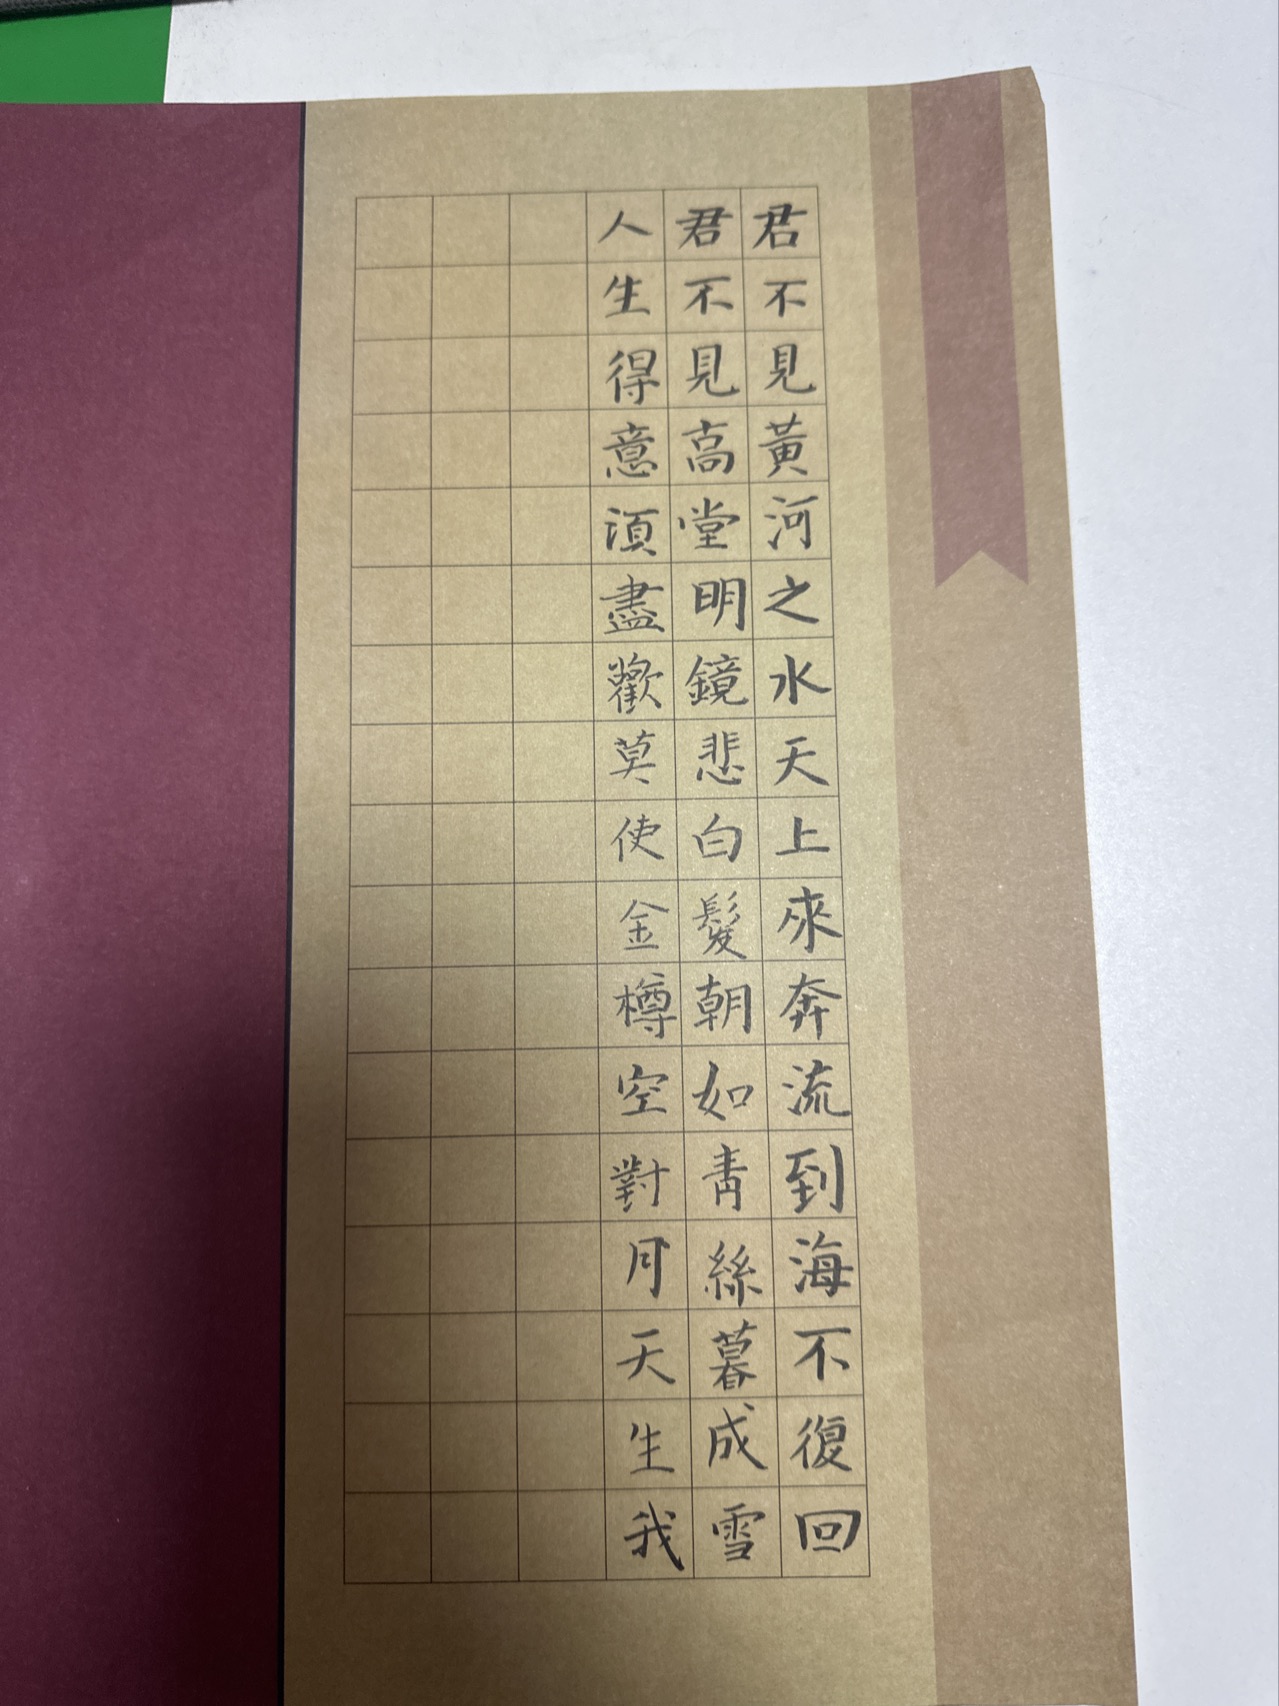 君不見黃河之水天上來奔流到海不復回
君不見高堂明鏡悲白髮朝如青絲暮成雪
人生得意須盡歡莫使金樽空對月天生我